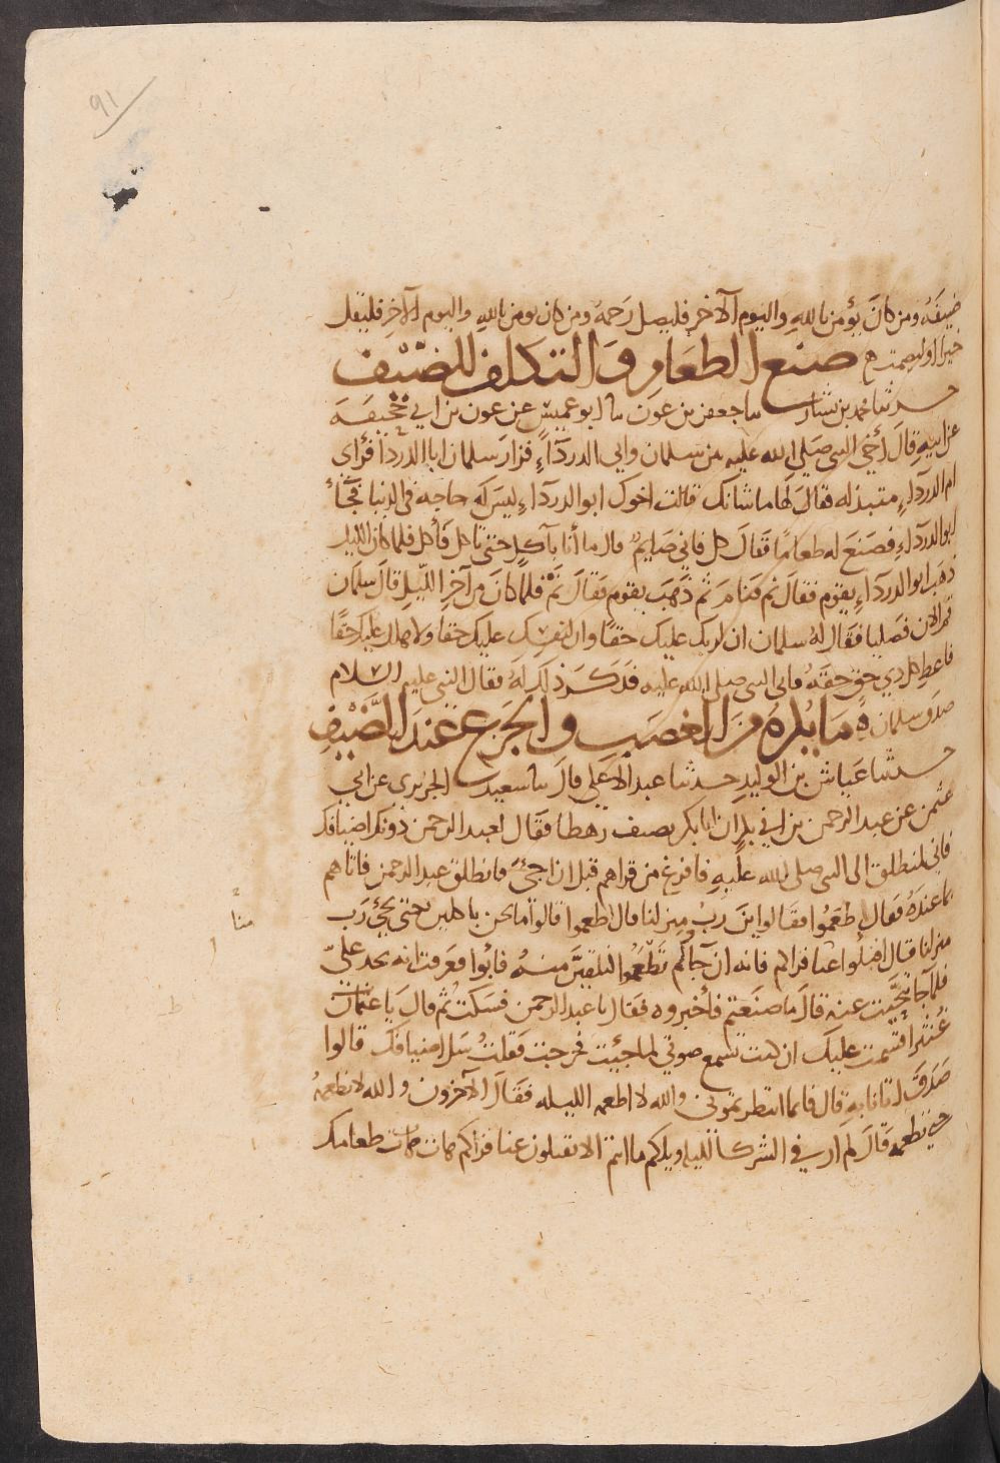 ٩١
ضيفَهُ ومن كانَ يؤمن باللهِ واليوم الآخرِ فليصل رَحمهُ ومن كان يومن باللهِ واليوم الآخرِ فليقل
خيرا اوليصمت صنع الطعَامِ وَالتكلف للضيْف
حدثنا محمد بن بشار سا جعفر بن عون سا ابو عميس عن عون بن ابي جحيفَه
عن ابيهِ قالَ آخي النبي صَلي الله عليه بين سلمان وابي الدردآءِ فزارَ سلمان ابا الدردا فرَأى
ام الدردآءِ متبذله فقالَ لَها ما شانك قالت اخوك ابو الدردآءِ ليسَ له حاجه في الدنيا فجآءَ
ابو الدردآءِ فصَنعَ له طعامًا فقالَ كل فاني صَايمٌ قال ما أنا بآكلٍ حتى تاكل فأكل فلما كان الليل
ذهَب ابو الدردَاءِ يقوم فقال نم فنامَ ثم ذهَبَ يقوم فقالَ نَمْ فلما كانَ من آخرِ الليلِ قالَ سلمان
قم الان فصَليا فقَال لهُ سلمان ان لربك عليك حقًا وان لنفسك عليك حقا ولاهلك عليك حقًا
فاعطِ كل ذي حق حقَهُ فاتى النبي صلى الله عليه فذكَرَ ذلك لَه فقال النبي عليه السلام
صدق سلمان مَا يكره منَ الغضَب والجَزَع عندَ الضَّيْفِ
حدثنا عياش بن الوليدِ حدثنا عبد الاعلي قالَ سا سعيد الجريري عن ابي
عثمن عن عبد الرحمن بن ابي بكر ان ابا بكر تضيف رهطا فقَال لعبد الرحمن دونك اضيافك
فاني منطلق الى النبي صلى الله عليهِ فافرغ من قراهم قبل ان اجئَ فانطلق عبد الرحمن فاتاهم
بما عندهُ فقال اطعَمُوا فقَالوا اينَ ربُّ منزلنا قال اطعموا قالوا ما نحن باكلين حتى يجئَ رَب
منزلنا قال اقبلوا عنا قراكم فانه ان جآ ولم تَطعَمُوا لنلقينَّ منهُ فابَوا فعَرفت انه يجد عليّ
منا
فلمآ جا تنحيت عنه قالَ ما صنَعتم فأخبروه فقال يا عبد الرحمن فسَكتُ ثم قالَ يَا
غُنثر اقسَمت عليك ان كنت تسمع صوتي لما جيئت فخرجت فقلتُ سَل اضيافك قالوا
صَدقَ اتانا بهِ قال فانما انتظرتموني والله لا اطعمه الليله فقالَ الآخرون والله لا نطعمهُ
حتى تطعمه قَالَ لم ار في الشر كالليله ويلكم ما انتم الا تقبلون عنا قراكم هات طعامك